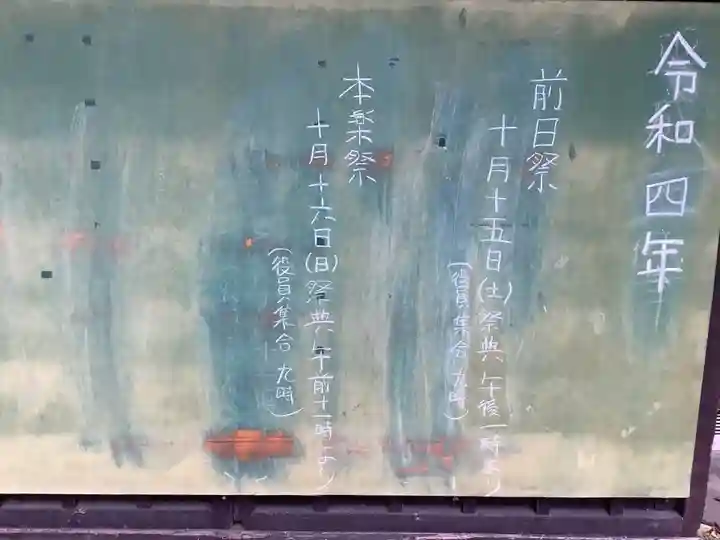 令和四年
前日祭
十月十五日(土)祭典午後一時より
(役員集合九時)
本楽祭
十月十六日(日)祭典午前十一時より
(役員集合九時)